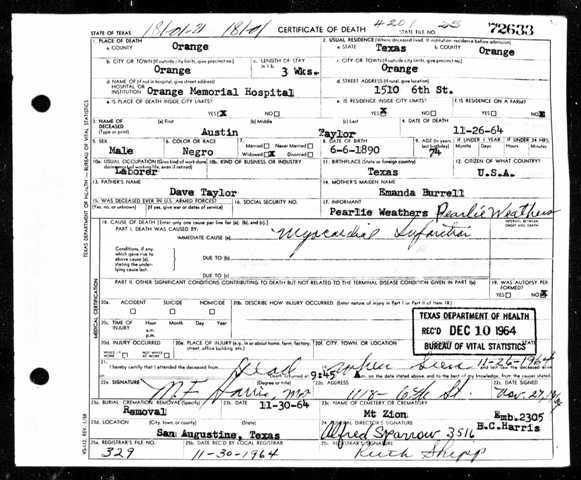 STATE OF TEXAS CERTIFICATE OF DEATH STATE FILE NO. 72633
1. PLACE OF DEATH 2. USUAL RESIDENCE (Where deceased lived. If institution: residence before admission)
a. COUNTY Orange a. STATE Texas b. COUNTY Orange
b. CITY OR TOWN (If outside city limits, give precinct no.) Orange c. LENGTH OF STAY in 1 b. 3 Wks. c. CITY OR TOWN (If outside city limits, give precinct no.) Orange
d. NAME OF (If not in hospital, give street address) HOSPITAL OR INSTITUTION Orange Memorial Hospital d. STREET ADDRESS (If rural, give location) 1510 6th St.
e. IS PLACE OF DEATH INSIDE CITY LIMITS? YES X NO e. IS RESIDENCE INSIDE CITY LIMITS? YES X NO f. IS RESIDENCE ON A FARM? YES NO X
3. NAME OF DECEASED (Type or print) (a) First Austin (b) Middle (c) Last Taylor 4. DATE OF DEATH 11-26-64
5. SEX Male 6. COLOR OR RACE Negro 7. Married Never Married Widowed X Divorced 8. DATE OF BIRTH 6-6-1890 9. AGE 74 IF UNDER 1 YEAR IF UNDER 24 HRS.
10a. USUAL OCCUPATION (Give kind of work done Laborer 10b. KIND OF BUSINESS OR INDUSTRY 11. BIRTHPLACE (State or foreign country) Texas 12. CITIZEN OF WHAT COUNTRY? U.S.A.
13. FATHER'S NAME Dave Taylor 14. MOTHER'S MAIDEN NAME Emanda Burrell
15. WAS DECEASED EVER IN U.S. ARMED FORCES? (Yes, no, or unknown) (If yes, give war or dates of service) 16. SOCIAL SECURITY NO. 17. INFORMANT Pearlie Weathers Pearlie Weathers
18. CAUSE OF DEATH [Enter only one cause per line for (a), (b), and (c).] INTERVAL BETWEEN ONSET AND DEATH
PART I. DEATH WAS CAUSED BY:
IMMEDIATE CAUSE (a) Myocardial Infarction
Conditions, if any, which gave rise to above cause (a), stating the underlying cause last. DUE TO (b)
DUE TO (c)
PART II. OTHER SIGNIFICANT CONDITIONS CONTRIBUTING TO DEATH BUT NOT RELATED TO THE TERMINAL DISEASE CONDITION GIVEN IN PART I(a) 19. WAS AUTOPSY PERFORMED? YES NO X
20a. ACCIDENT SUICIDE HOMICIDE 20b. DESCRIBE HOW INJURY OCCURRED. (Enter nature of injury in Part I or Part II of item 18)
20c. TIME OF INJURY Hour Month Day Year a.m. p.m.
TEXAS DEPARTMENT OF HEALTH
REC'D DEC 10 1964
BUREAU OF VITAL STATISTICS
20d. INJURY OCCURRED WHILE AT WORK NOT WHILE AT WORK 20e. PLACE OF INJURY (e.g. in or about home, farm, factory, street, office building, etc.) 20f. CITY, TOWN, OR LOCATION
21. I hereby certify that I attended the deceased Dead when seen 11-26-1964
9:45 A
22a. SIGNATURE (Degree or title) 22b. ADDRESS 22c. DATE SIGNED
M.F. Harris, MD Nov. 27,
23a. BURIAL CREMATION, REMOVAL (Specify) Removal 23b. DATE 11-30-64 23c. NAME OF CEMETERY OR CREMATORY Mt Zion Emb.2305
23d. LOCATION (City, town, or county) (State) San Augustine, Texas 24. FUNERAL DIRECTOR'S SIGNATURE Alfred Sparrow 3516 B.C.Harris
25a. REGISTRAR'S FILE NO. 329 25b. DATE REC'D BY LOCAL REGISTRAR 11-30-1964 25c. REGISTRAR'S SIGNATURE Ruth Shipp
TEXAS DEPARTMENT OF HEALTH — BUREAU OF VITAL STATISTICS
MEDICAL CERTIFICATION